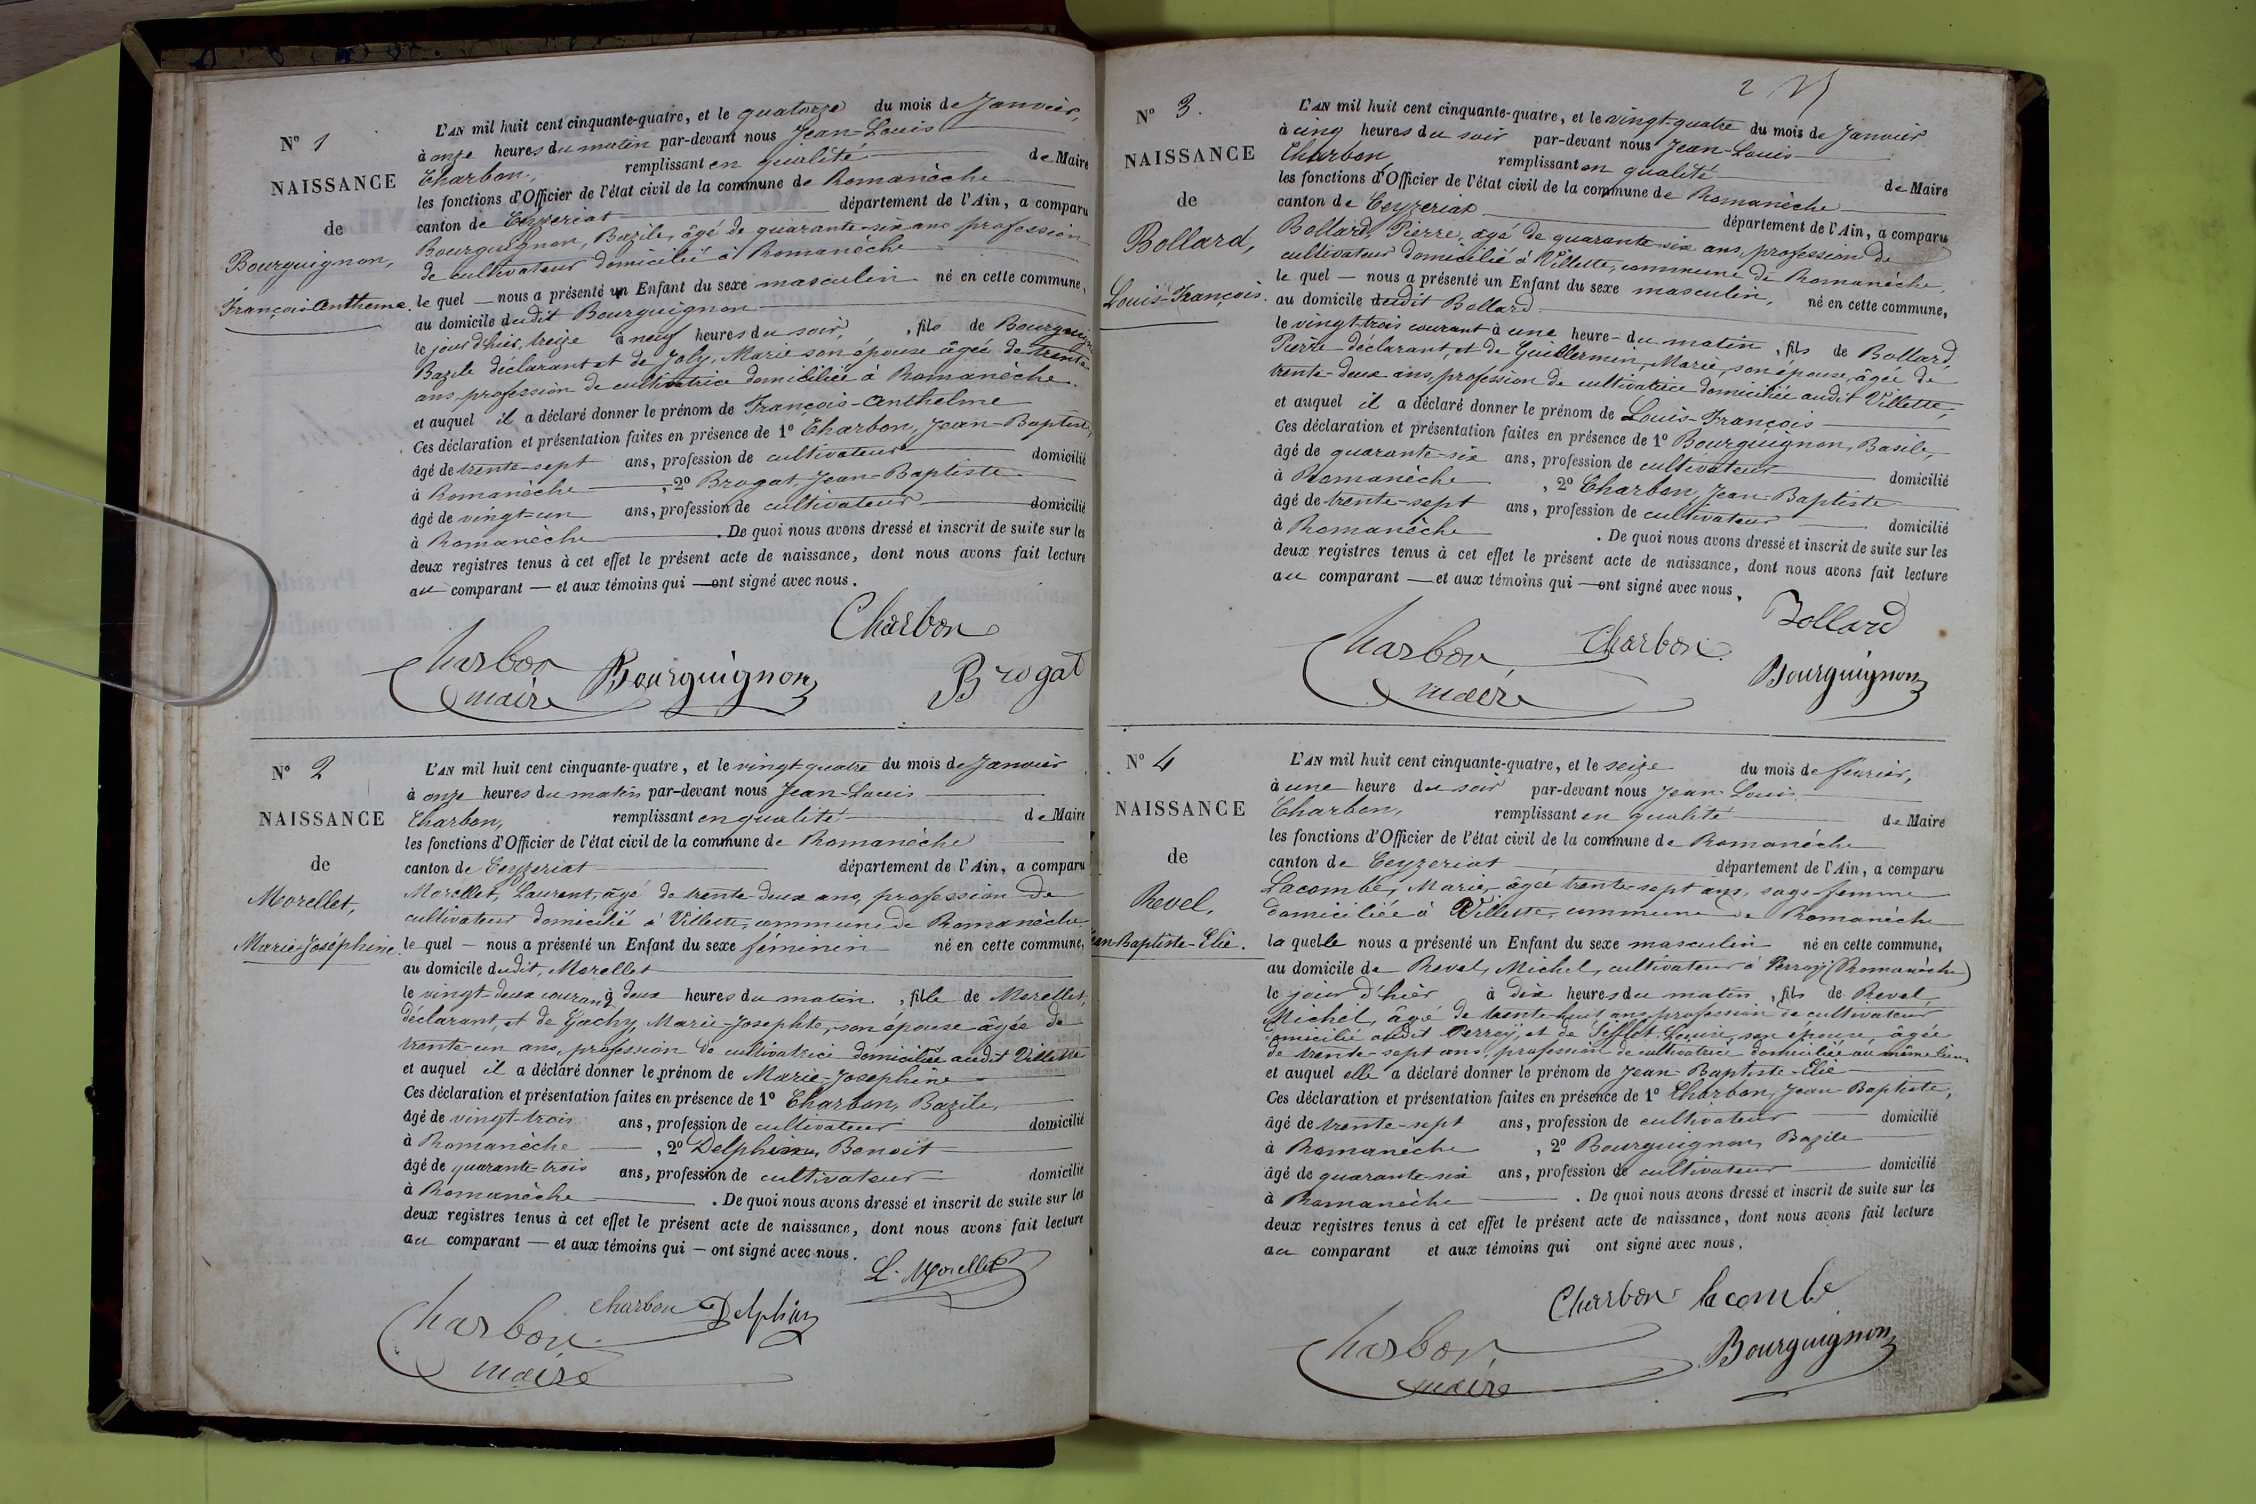 N° 1
NAISSANCE
de
Bourguignon,
François-Anthelme.
L'AN mil huit cent cinquante-quatre, et le quatorze du mois de Janvier,
à onze heures du matin par-devant nous Jean-Louis
Charbon, remplissant en qualité de Maire
les fonctions d'Officier de l'état civil de la commune de Romanèche
canton de Ceyzeriat département de l'Ain, a comparu
Bourguignon, Bazile, âgé de quarante-six ans profession
de cultivateur domicilié à Romanèche
le quel — nous a présenté un Enfant du sexe masculin né en cette commune,
au domicile dudit Bourguignon
le jour d'hier, treize à neuf heures du soir, , fils de Bourguignon
Bazile déclarant et de Joly, Marie son épouse âgée de trente
ans profession de cultivatrice domiciliée à Romanèche.
et auquel il a déclaré donner le prénom de François-Anthelme
Ces déclaration et présentation faites en présence de 1° Charbon, Jean-Baptiste,
âgé de trente-sept ans, profession de cultivateur domicilié
à Romanèche , 2° Brogat Jean-Baptiste
âgé de vingt-un ans, profession de cultivateur domicilié
à Romanèche . De quoi nous avons dressé et inscrit de suite sur les
deux registres tenus à cet effet le présent acte de naissance, dont nous avons fait lecture
au comparant — et aux témoins qui — ont signé avec nous.
Charbon
Charbon maire Bourguignon Brogat
N° 2
NAISSANCE
de
Morellet,
Marie-Joséphine.
L'AN mil huit cent cinquante-quatre, et le vingt-quatre du mois de Janvier
à onze heures du matin par-devant nous Jean-Louis
Charbon, remplissant en qualité de Maire
les fonctions d'Officier de l'état civil de la commune de Romanèche
canton de Ceyzeriat département de l'Ain, a comparu
Morellet, Laurent, âgé de trente-deux ans, profession de
cultivateur domicilié à Villette, commune de Romanèche
le quel — nous a présenté un Enfant du sexe féminin né en cette commune,
au domicile dudit Morellet
le vingt-deux courant à deux heures du matin , fille de Morellet,
déclarant, et de Gachy, Marie-Josephte, son épouse âgée de
trente-un ans, profession de cultivatrice domiciliée audit Villette
et auquel il a déclaré donner le prénom de Marie-Josephine
Ces déclaration et présentation faites en présence de 1° Charbon, Bazile,
âgé de vingt-trois ans, profession de cultivateur domicilié
à Romanèche , 2° Delphin, Benoit
âgé de quarante-trois ans, profession de cultivateur domicilié
à Romanèche . De quoi nous avons dressé et inscrit de suite sur les
deux registres tenus à cet effet le présent acte de naissance, dont nous avons fait lecture
au comparant — et aux témoins qui — ont signé avec nous.
L. Morellet
Charbon maire charbon Delphin
2
N° 3.
NAISSANCE
de
Bollard,
Louis-François.
L'AN mil huit cent cinquante-quatre, et le vingt-quatre du mois de Janvier
à cinq heures du soir par-devant nous Jean-Louis
Charbon remplissant en qualité de Maire
les fonctions d'Officier de l'état civil de la commune de Romanèche
canton de Ceyzeriat département de l'Ain, a comparu
Bollard, Pierre, âgé de quarante-six ans, profession de
cultivateur domicilié à Villette, commune de Romanèche,
le quel — nous a présenté un Enfant du sexe masculin, né en cette commune,
au domicile dudit Bollard
le vingt-trois courant à une heure du matin , fils de Bollard,
Pierre déclarant, et de Guillermin, Marie, son épouse, âgée de
trente-deux ans, profession de cultivatrice domiciliée audit Villette,
et auquel il a déclaré donner le prénom de Louis-François
Ces déclaration et présentation faites en présence de 1° Bourguignon, Basile,
âgé de quarante-six ans, profession de cultivateur domicilié
à Romanèche , 2° Charbon, Jean-Baptiste
âgé de trente-sept ans, profession de cultivateur domicilié
à Romanèche . De quoi nous avons dressé et inscrit de suite sur les
deux registres tenus à cet effet le présent acte de naissance, dont nous avons fait lecture
au comparant — et aux témoins qui — ont signé avec nous.
Bollard
Charbon maire Charbon Bourguignon
N° 4
NAISSANCE
de
Revel,
Jean-Baptiste-Elie.
L'AN mil huit cent cinquante-quatre, et le seize du mois de février,
à une heure du soir par-devant nous Jean-Louis
Charbon, remplissant en qualité de Maire
les fonctions d'Officier de l'état civil de la commune de Romanèche
canton de Ceyzeriat département de l'Ain, a comparu
Lacombe, Marie, âgée trente-sept ans, sage-femme
domiciliée à Villette, commune de Romanèche
la quelle nous a présenté un Enfant du sexe masculin né en cette commune,
au domicile de Revel, Michel, cultivateur à Perroy (Romanèche)
le jour d'hier à dix heures du matin , fils de Revel,
Michel, âgé de trente-huit ans, profession de cultivateur
domicilié audit Perroy, et de Louise, son épouse, âgée
de trente-sept ans, profession de cultivatrice domiciliée au même lieu
et auquel elle a déclaré donner le prénom de Jean-Baptiste-Elie
Ces déclaration et présentation faites en présence de 1° Charbon, Jean-Baptiste,
âgé de trente-sept ans, profession de cultivateur domicilié
à Romanèche , 2° Bourguignon, Bazile
âgé de quarante-six ans, profession de cultivateur domicilié
à Romanèche . De quoi nous avons dressé et inscrit de suite sur les
deux registres tenus à cet effet le présent acte de naissance, dont nous avons fait lecture
au comparant et aux témoins qui ont signé avec nous.
Charbon lacombe
Charbon maire Bourguignon